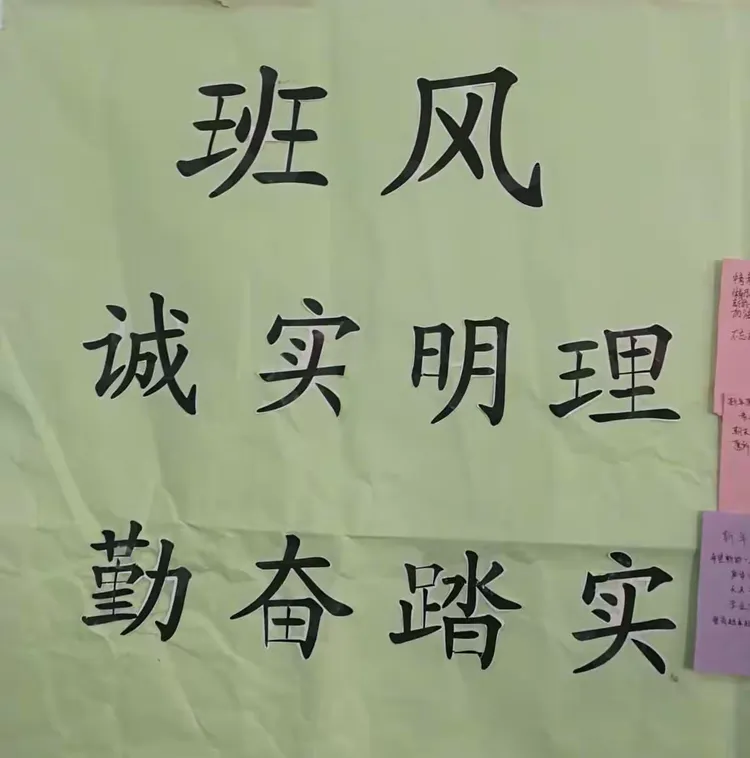 班风
诚实明理
勤奋踏实
新年